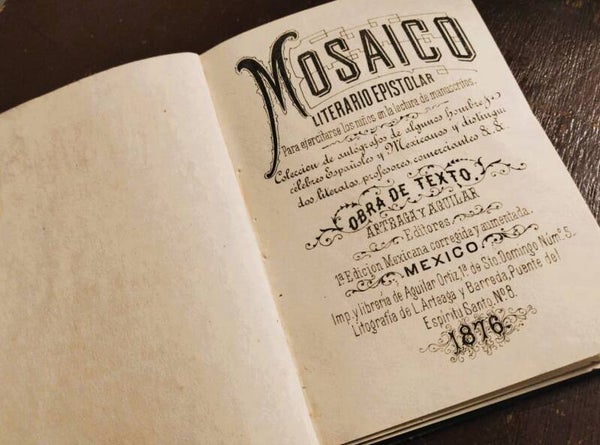 MOSAICO
LITERARIO EPISTOLAR
Para ejercitarse los niños en la lectura de manuscritos.
Coleccion de autógrafos de algunos hombres
célebres Españoles y Mexicanos y distingui
dos literatos, profesores, comerciantes &. &.
OBRA DE TEXTO.
ARTEAGA Y AGUILAR
Editores
1ª Edicion Mexicana corregida y aumentada.
MEXICO
Imp. y libreria de Aguilar Ortiz, 1ª de Sto. Domingo Num. 5.
Litografia de L. Arteaga y Barreda, Puente del
Espiritu Santo, Nº 8.
1876.